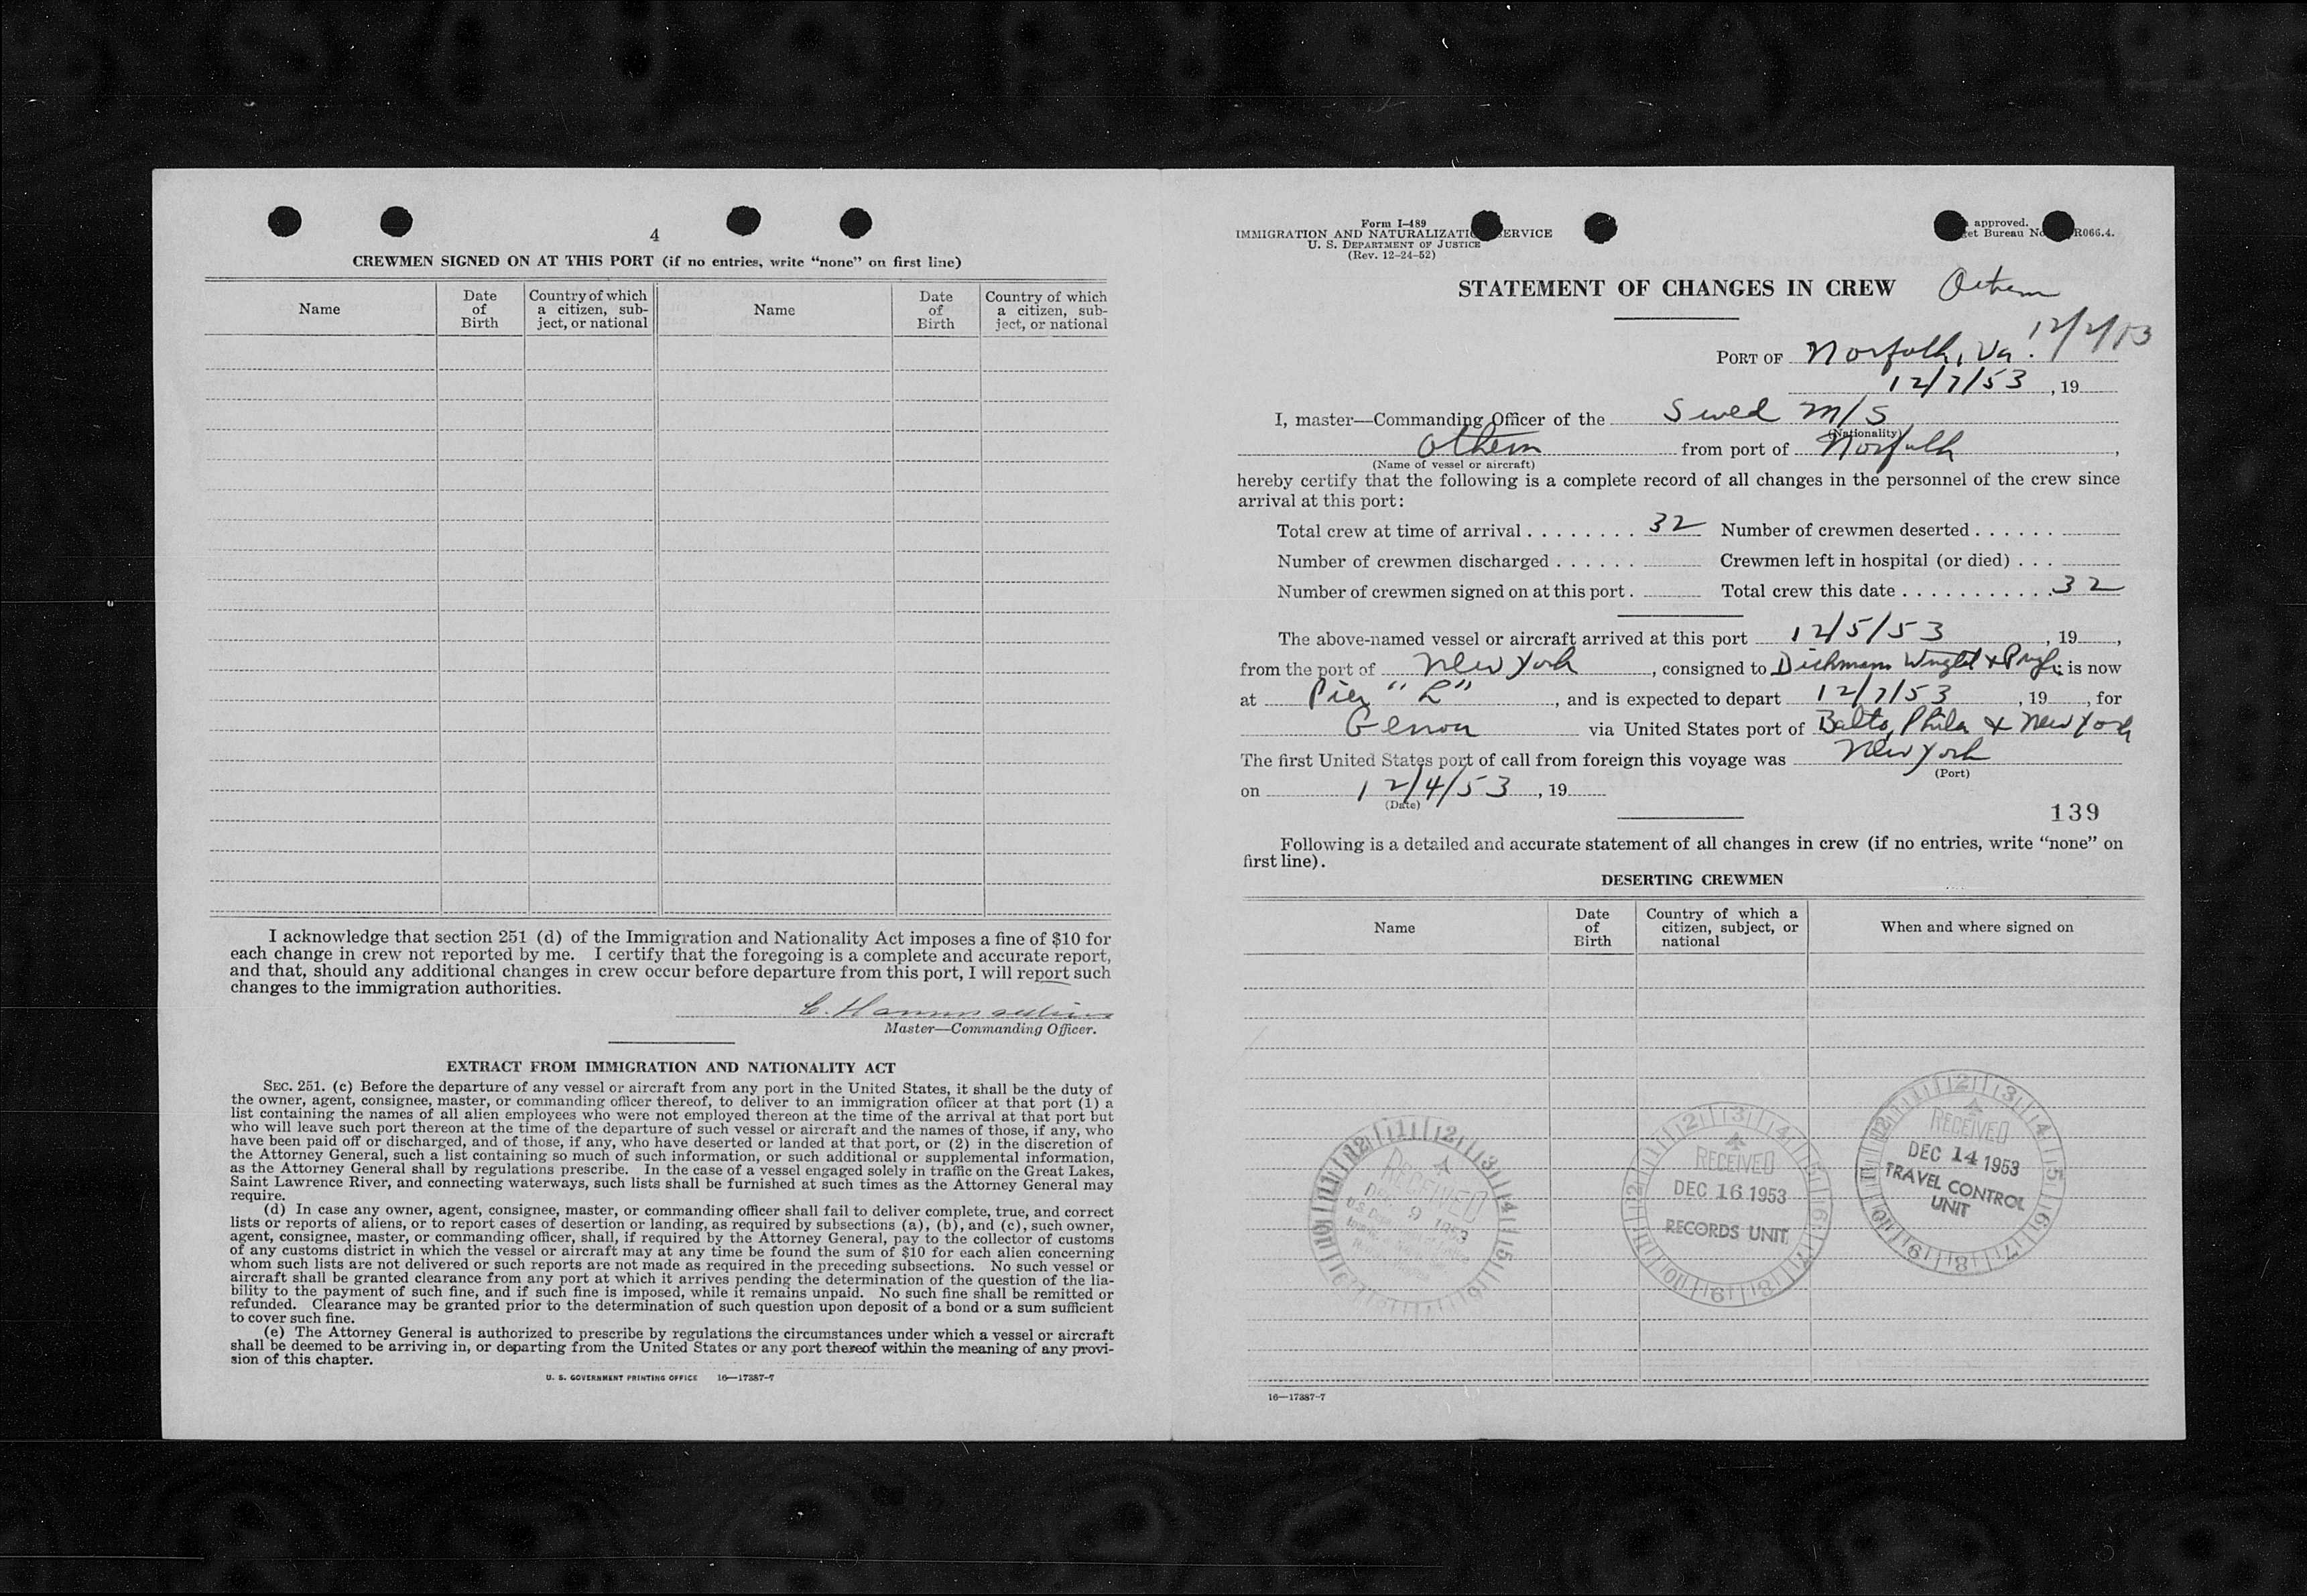 4
CREWMEN SIGNED ON AT THIS PORT (if no entries, write “none” on first line)
Name
Date of Birth
Country of which a citizen, subject, or national
Name
Date of Birth
Country of which a citizen, subject, or national
I acknowledge that section 251 (d) of the Immigration and Nationality Act imposes a fine of $10 for
each change in crew not reported by me. I certify that the foregoing is a complete and accurate report,
and that, should any additional changes in crew occur before departure from this port, I will report such
changes to the immigration authorities.
C.
Master—Commanding Officer.
EXTRACT FROM IMMIGRATION AND NATIONALITY ACT
SEC. 251. (c) Before the departure of any vessel or aircraft from any port in the United States, it shall be the duty of
the owner, agent, consignee, master, or commanding officer thereof, to deliver to an immigration officer at that port (1) a
list containing the names of all alien employees who were not employed thereon at the time of the arrival at that port but
who will leave such port thereon at the time of the departure of such vessel or aircraft and the names of those, if any, who
have been paid off or discharged, and of those, if any, who have deserted or landed at that port, or (2) in the discretion of
the Attorney General, such a list containing so much of such information, or such additional or supplemental information,
as the Attorney General shall by regulations prescribe. In the case of a vessel engaged solely in traffic on the Great Lakes,
Saint Lawrence River, and connecting waterways, such lists shall be furnished at such times as the Attorney General may
require.
(d) In case any owner, agent, consignee, master, or commanding officer shall fail to deliver complete, true, and correct
lists or reports of aliens, or to report cases of desertion or landing, as required by subsections (a), (b), and (c), such owner,
agent, consignee, master, or commanding officer, shall, if required by the Attorney General, pay to the collector of customs
of any customs district in which the vessel or aircraft may at any time be found the sum of $10 for each alien concerning
whom such lists are not delivered or such reports are not made as required in the preceding subsections. No such vessel or
aircraft shall be granted clearance from any port at which it arrives pending the determination of the question of the lia-
bility to the payment of such fine, and if such fine is imposed, while it remains unpaid. No such fine shall be remitted or
refunded. Clearance may be granted prior to the determination of such question upon deposit of a bond or a sum sufficient
to cover such fine.
(e) The Attorney General is authorized to prescribe by regulations the circumstances under which a vessel or aircraft
shall be deemed to be arriving in, or departing from the United States or any port thereof within the meaning of any provi-
sion of this chapter.
U. S. GOVERNMENT PRINTING OFFICE 16—17387-7
Form I-489
IMMIGRATION AND NATURALIZATION SERVICE
U. S. DEPARTMENT OF JUSTICE
(Rev. 12-24-52)
approved.
et Bureau No. R066.4.
STATEMENT OF CHANGES IN CREW
PORT OF Norfolk, Va.
12/7/53, 19
I, master—Commanding Officer of the Swed M/S
(Nationality)
Othem from port of Norfolk,
(Name of vessel or aircraft)
hereby certify that the following is a complete record of all changes in the personnel of the crew since
arrival at this port:
Total crew at time of arrival . . . . . . . . 32 Number of crewmen deserted . . . . . .
Number of crewmen discharged . . . . . . Crewmen left in hospital (or died) . . .
Number of crewmen signed on at this port . Total crew this date . . . . . . . . . . . . 32
The above-named vessel or aircraft arrived at this port 12/5/53, 19,
from the port of New York, consigned to Dichmann Wright & Pugh; is now
at Pier “L”, and is expected to depart 12/7/53, 19, for
Genoa via United States port of Balto, Phila & New York
The first United States port of call from foreign this voyage was New York
(Port)
on 12/4/53, 19
(Date)
139
Following is a detailed and accurate statement of all changes in crew (if no entries, write “none” on
first line).
DESERTING CREWMEN
Name
Date of Birth
Country of which a citizen, subject, or national
When and where signed on
RECEIVED
DEC 9 1953
RECEIVED
DEC 16 1953
RECORDS UNIT
RECEIVED
DEC 14 1953
TRAVEL CONTROL
UNIT
16—17387-7